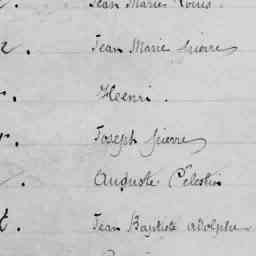 Jean Marie Louis.
Jean Marie Pierre
Henri.
Joseph Pierre
Auguste Célestin
t. Jean Baptiste Adolphe